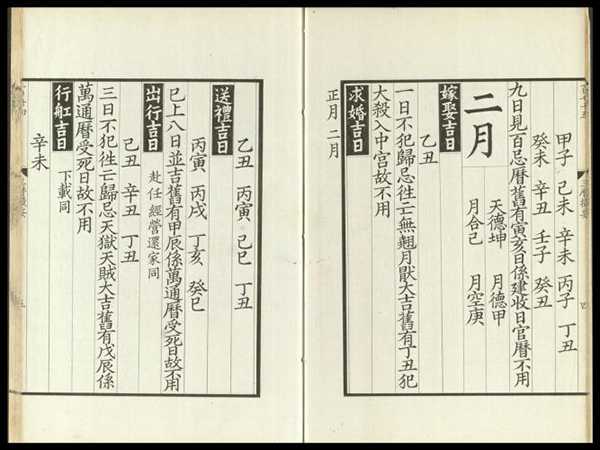 甲子 己未 辛未 丙子 丁丑
癸未 辛丑 壬子 癸丑
九日見百忌曆舊有寅亥日係建收日官曆不用
二月
天德坤 月德甲
月合己 月空庚
嫁娶吉日
乙丑
一日不犯歸忌徃亡無翹月厭大吉舊有丁丑犯
大殺入中宮故不用
求婚吉日
正月 二月
乙丑 丙寅 己巳 丁丑
送禮吉日
丙寅 丙戌 丁亥 癸巳
巳上八日並吉舊有甲辰係萬通曆受死日故不用
出行吉日 赴任經營還家同
己丑 辛丑 丁丑
三日不犯徃亡歸忌天獄天賊大吉舊有戊辰係
萬通曆受死日故不用
行舡吉日 下載同
辛未